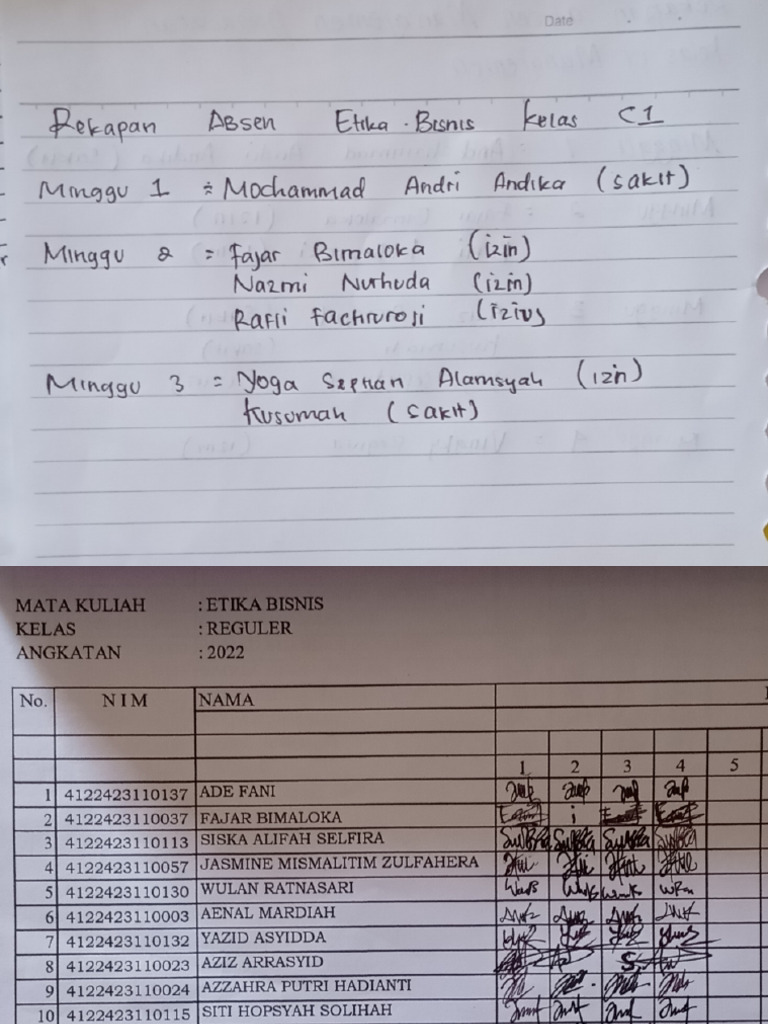 Date
Rekapan Absen Etika Bisnis Kelas C1
Minggu 1 = Mochammad Andri Andika (sakit)
Minggu 2 = Fajar Bimaloka (izin)
Nazmi Nurhuda (izin)
Rafli Fachruroji (izin)
Minggu 3 = Yoga Septian Alamsyah (izin)
Kusumah (sakit)
MATA KULIAH : ETIKA BISNIS
KELAS : REGULER
ANGKATAN : 2022
No. NIM NAMA
1 2 3 4 5
1 4122423110137 ADE FANI
2 4122423110037 FAJAR BIMALOKA i
3 4122423110113 SISKA ALIFAH SELFIRA
4 4122423110057 JASMINE MISMALITIM ZULFAHERA
5 4122423110130 WULAN RATNASARI
6 4122423110003 AENAL MARDIAH
7 4122423110132 YAZID ASYIDDA
8 4122423110023 AZIZ ARRASYID S
9 4122423110024 AZZAHRA PUTRI HADIANTI
10 4122423110115 SITI HOPSYAH SOLIHAH